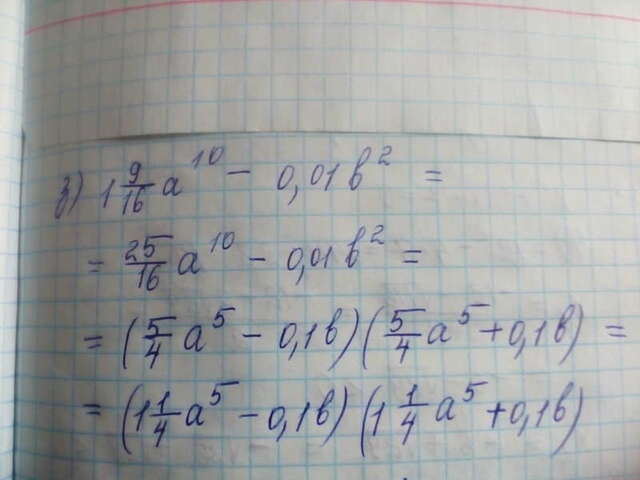 з) 1 9/16 a^10 - 0,01b^2 =
= 25/16 a^10 - 0,01b^2 =
= (5/4 a^5 - 0,1b)(5/4 a^5 + 0,1b) =
= (1 1/4 a^5 - 0,1b)(1 1/4 a^5 + 0,1b)